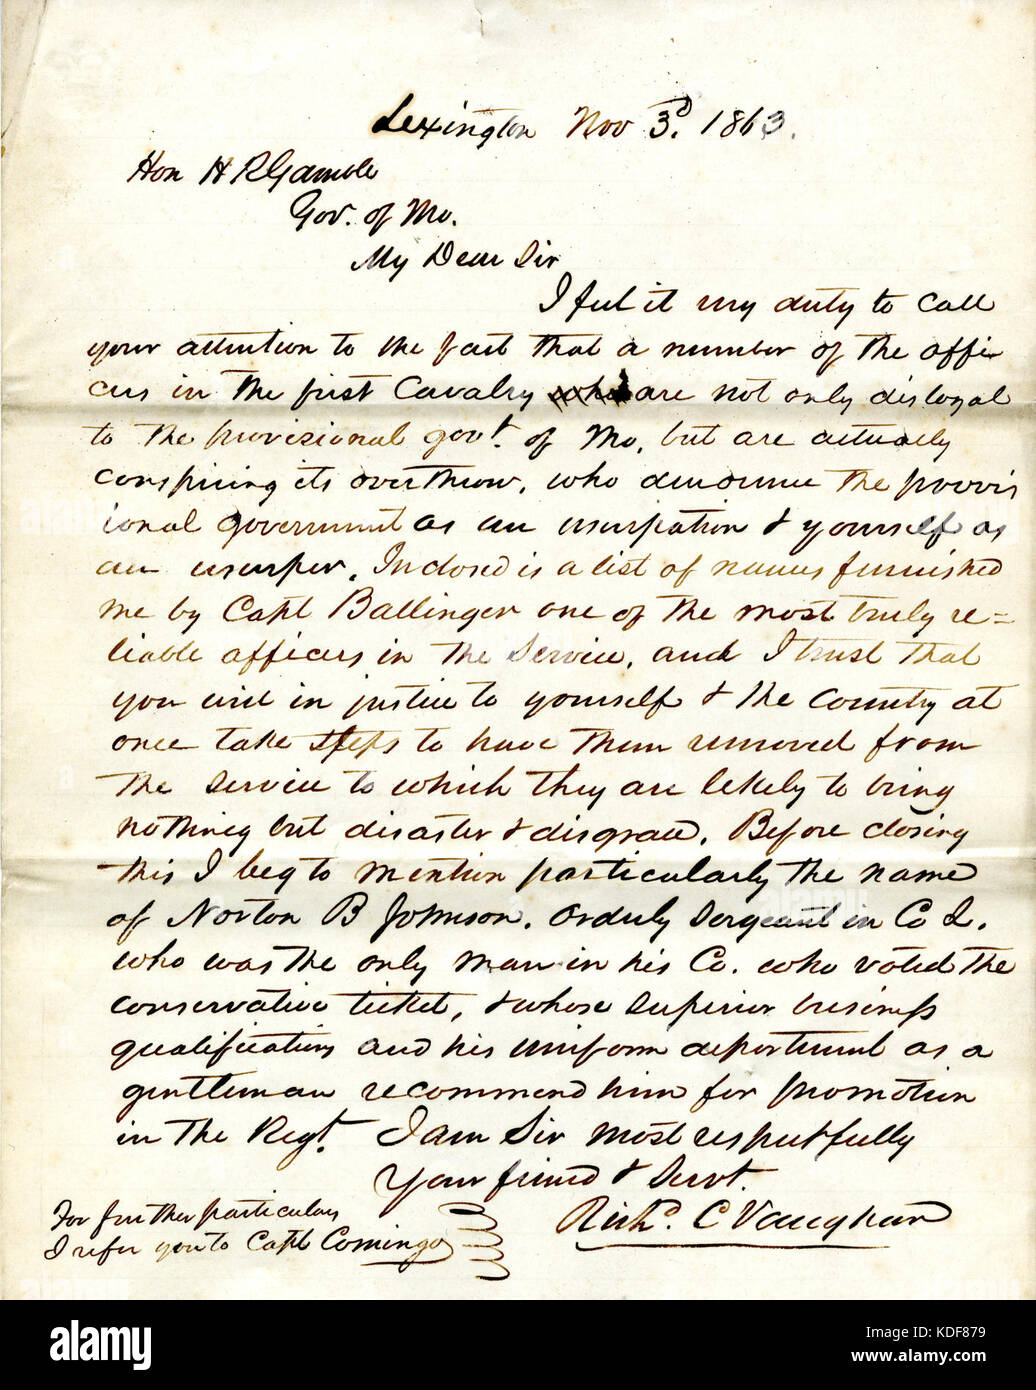 Lexington Nov 3d. 1863.
Hon H R Gamble
Gov. of Mo.
My Dear Sir
I feel it my duty to call
your attention to the fact that a number of the offi
cers in the first Cavalry who are not only disloyal
to the provisional govt. of Mo, but are actually
conspiring its overthrow, who denounce the provis
ional government as an usurpation & yourself as
an usurper. Inclosed is a list of names furnished
me by Capt Ballinger one of the most truly re=
liable officers in the service, and I trust that
you will in justice to yourself & the country at
once take steps to have them removed from
the service to which they are likely to bring
nothing but disaster & disgrace. Before closing
this I beg to mention particularly the name
of Norton B Johnson. Orderly Sergeant in Co L.
who was the only man in his Co. who voted the
conservative ticket, & whose superior business
qualifications and his uniform deportment as a
gentleman recommend him for promotion
in the Regt. I am Sir most respectfully
Your friend & Servt.
Richd. C Vaughan
For further particulars
I refer you to Capt Comingo
alamy
Image ID: KDF879
www.alamy.com